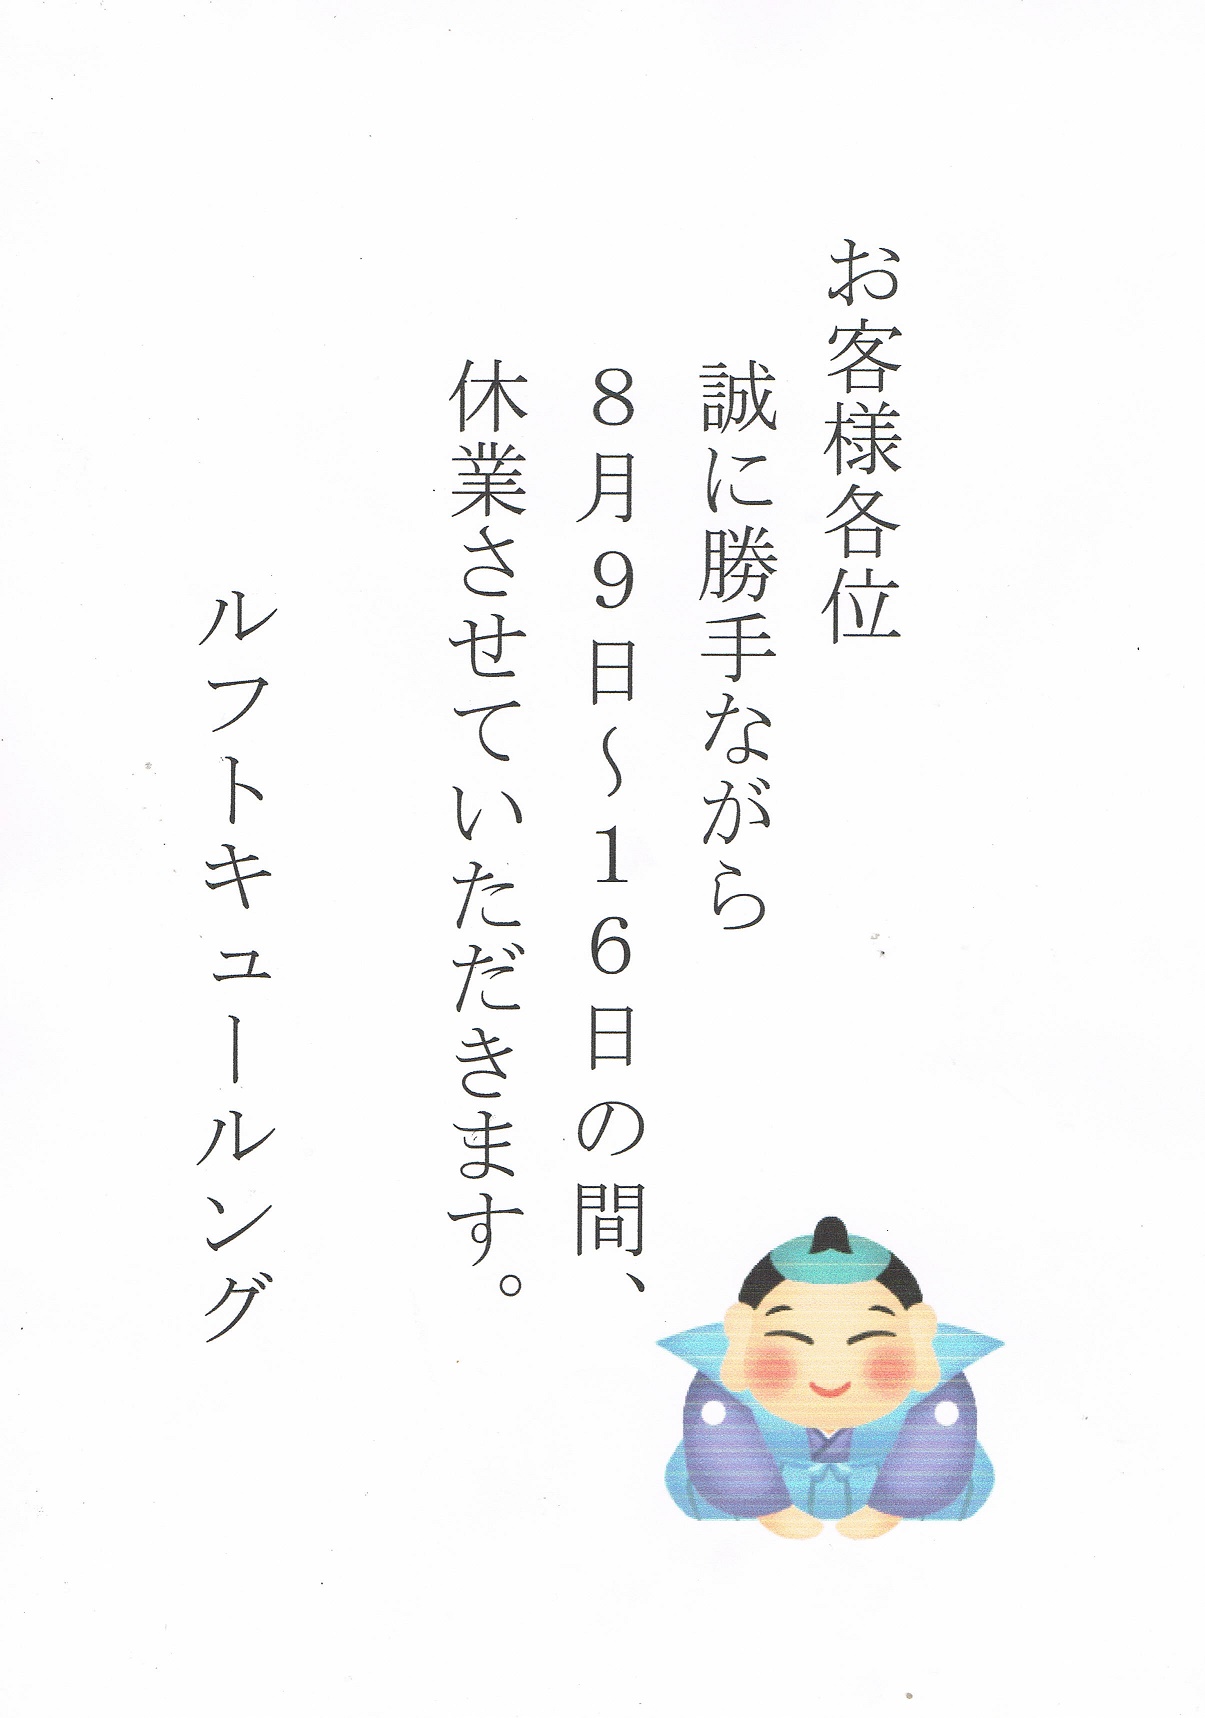 お客様各位
誠に勝手ながら
８月９日～１６日の間、
休業させていただきます。
ルフトキュールング